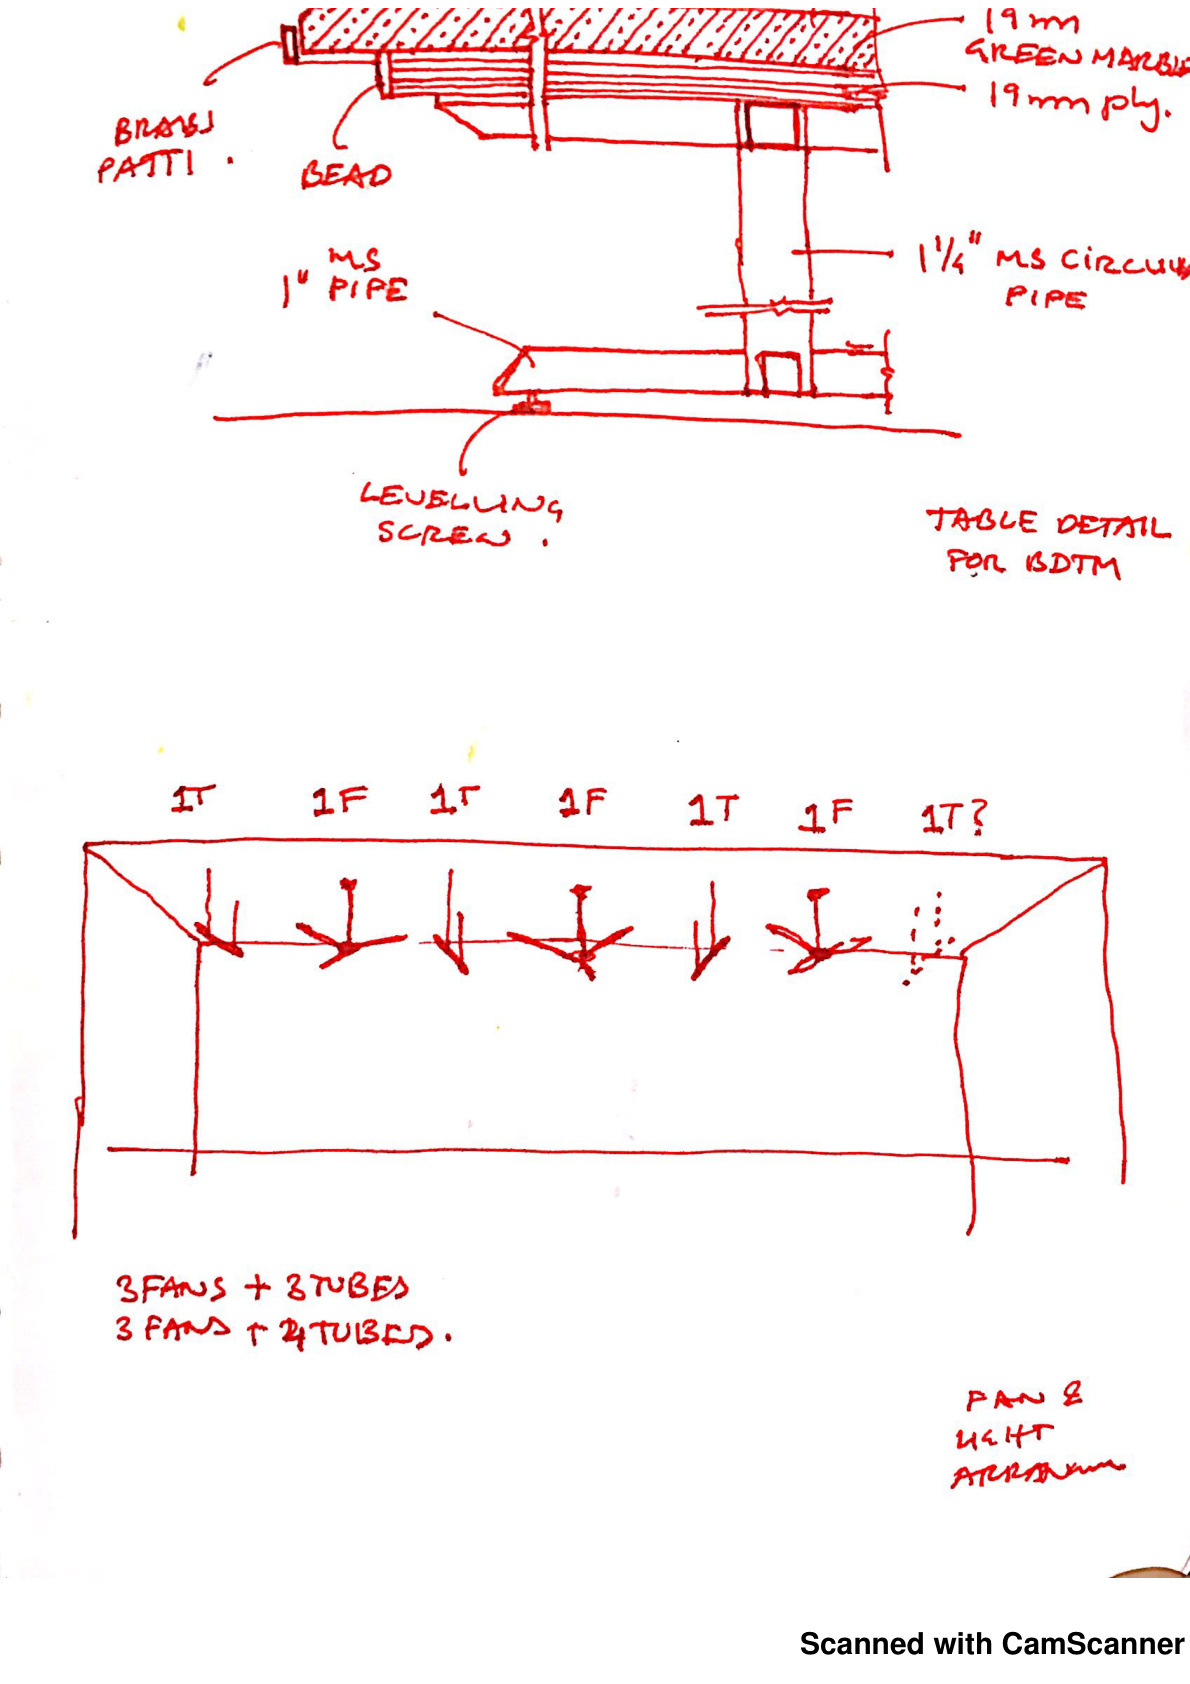 19mm
GREEN MARBLE
19mm ply.
BRASS
PATTI.
BEAD
MS
1" PIPE
1 1/4" MS CIRCULAR
PIPE
LEVELLING
SCREW.
TABLE DETAIL
FOR BDTM
1T 1F 1T 1F 1T 1F 1T?
3 FANS + 3 TUBES
3 FANS + 4 TUBES.
FAN &
LIGHT
Scanned with CamScanner